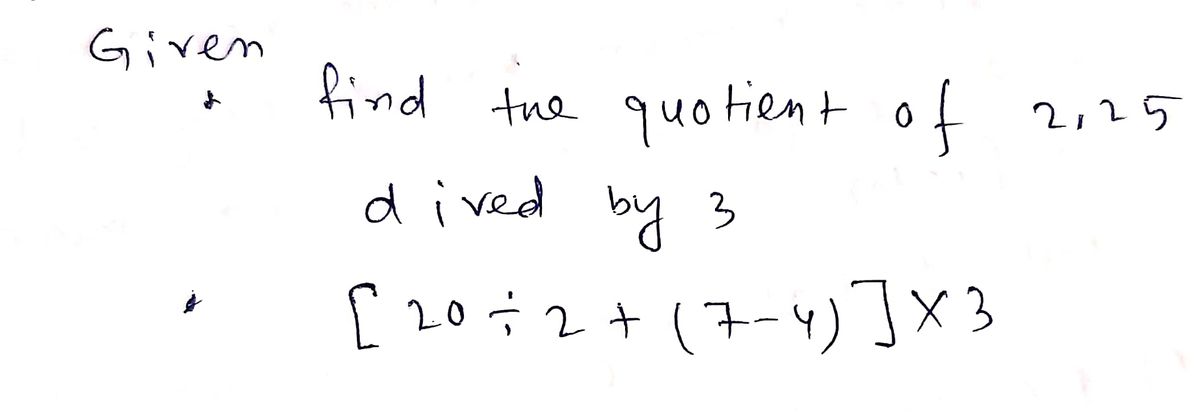 Given
* find the quotient of 2,25
dived by 3
* [ 20 ÷ 2 + (7-4) ] × 3